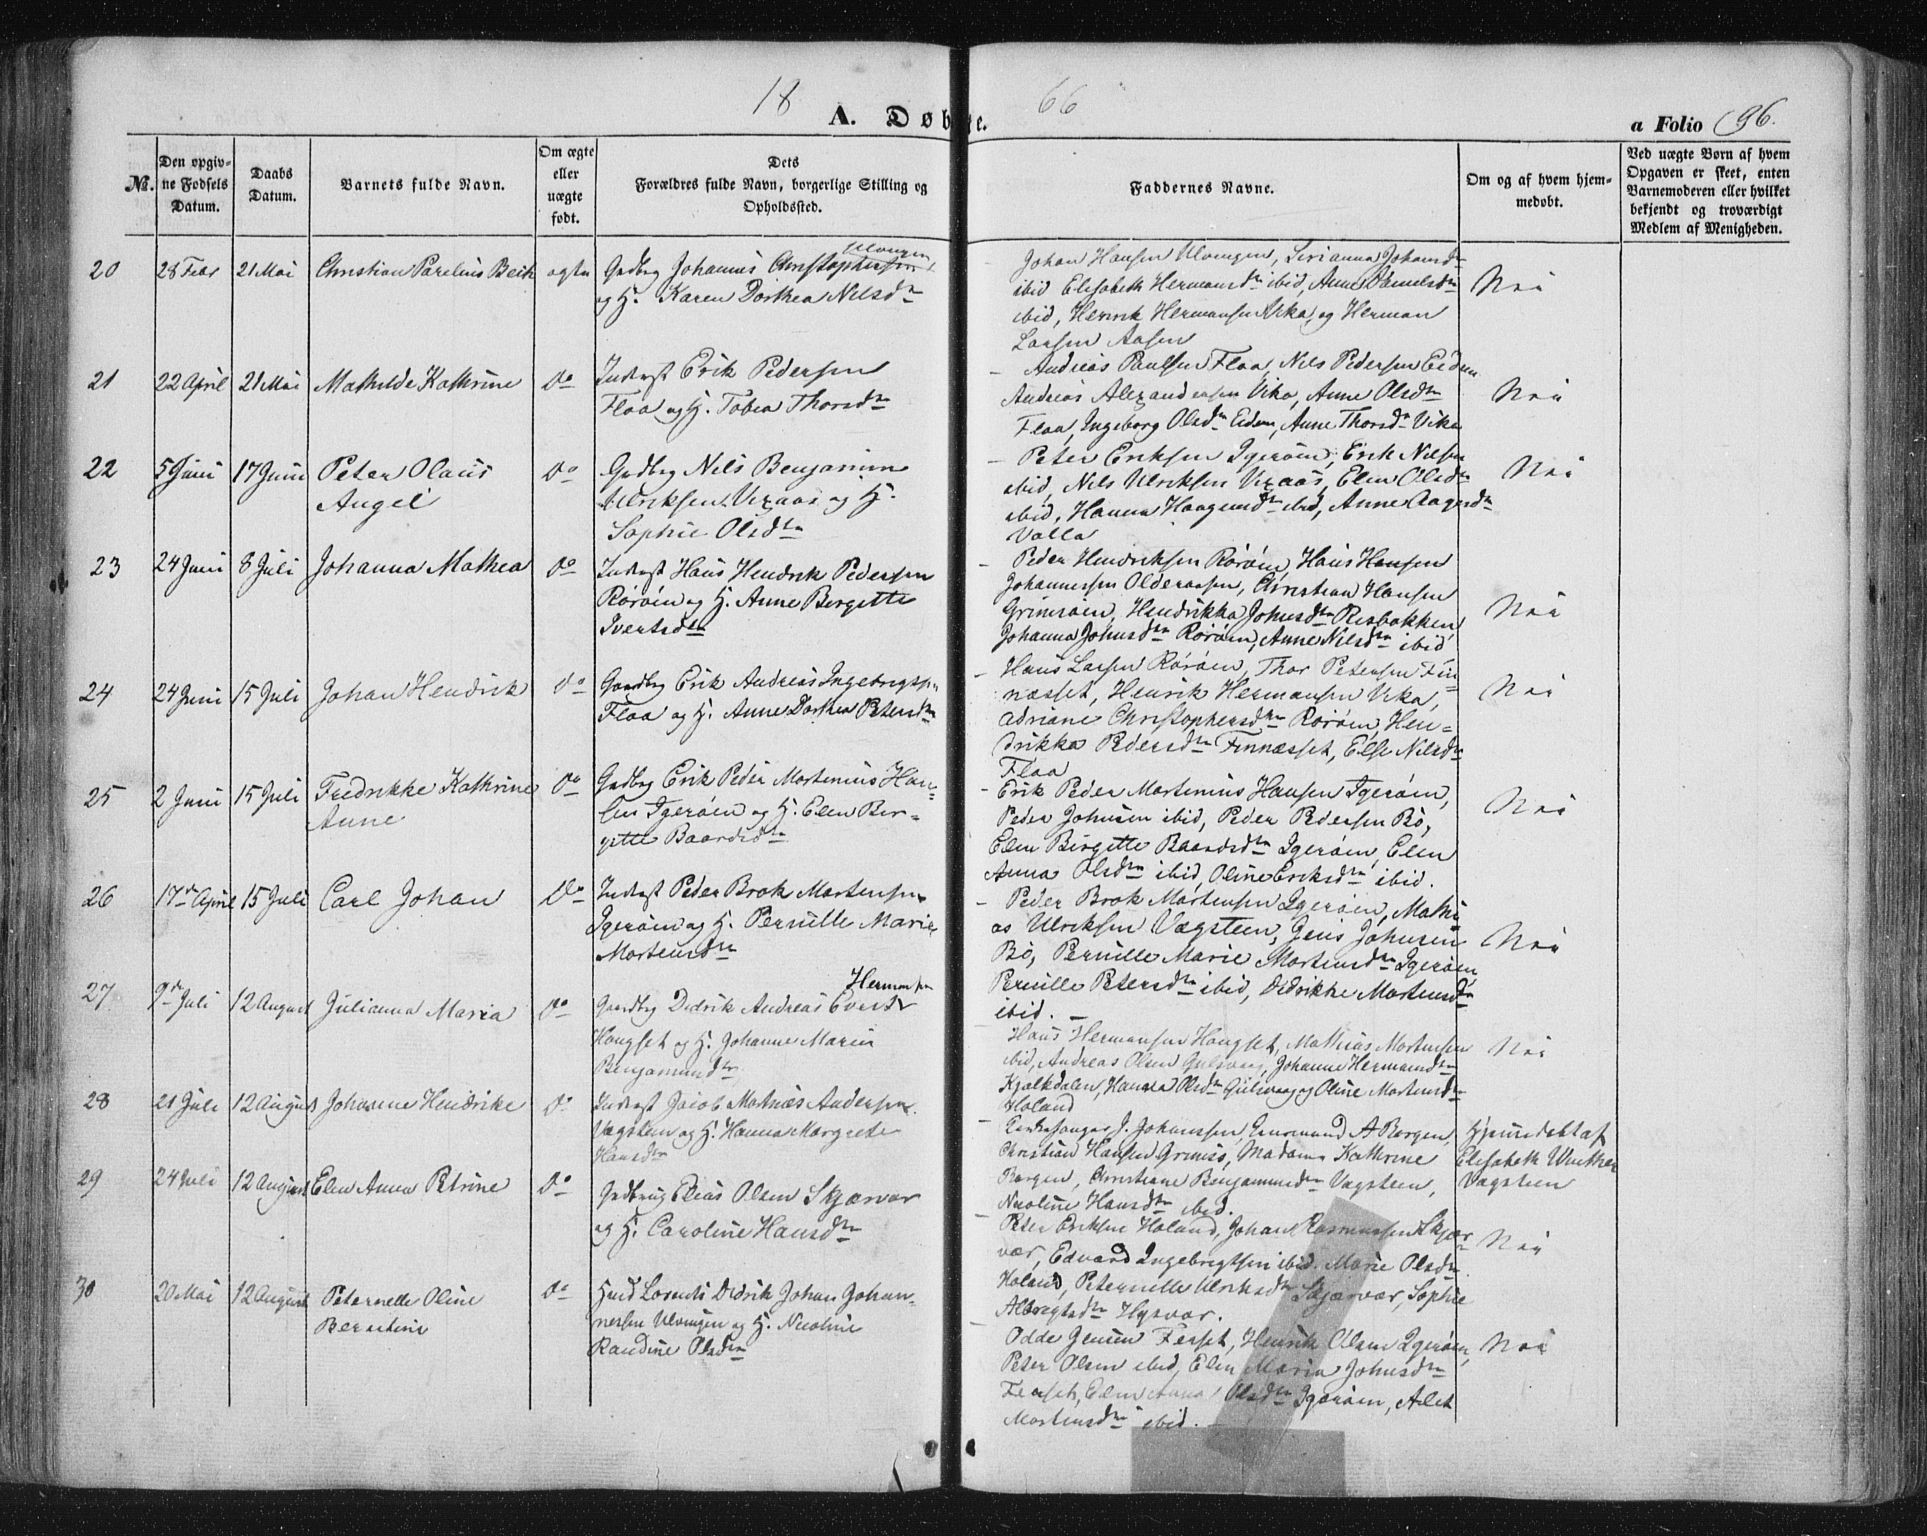 18 66
A. Døbte.
a Folio 96.
No.
Den opgiv-
ne Fødsels
Datum.
Daabs
Datum.
Barnets fulde Navn.
Om ægte
eller
uægte
født.
Dets
Forældres fulde Navn, borgerlige Stilling og
Opholdssted.
Faddernes Navne.
Om og af hvem hjem-
medøbt.
Ved uægte Børn af hvem
Opgaven er skeet, enten
Barnemoderen eller hvilket
bekjendt og troværdigt
Medlem af Menigheden.
20 28 Febr 21 Mai Christian Parelius Beck ægte
Gdbrg Johannes Christophersen Ulvangen
og H. Karen Dorthea Nilsdtr
Johan Hansen Ulvangen,
ibid Elisabeth Hermansdtr ibid, Anne Danielsdtr
ibid, Henrik Hermansen Vika, og Herman
Larsen Aasen
Nei
21 22 April 21 Mai Mathilde Kathrine do
Inderst Erik Pedersen
Flaa og H. Tobea Thorsdtr
Andreas Paulsen Flaa, Nils Pedersen Eidem
Andreas Alexandersen Vika, Anne Olsdtr
Flaa, Ingeborg Olsdtr Eidem, Anne Thorsdtr Vika
Nei
22 5 Juni 17 Juni Peter Olaus
Angel
do
Gdbrg Nils Benjamin
Ulriksen Vexaas og H.
Sophie Olsdtr
Peter Eriksen Igerøen, Erik Nilsen
ibid, Nils Ulriksen Vexaas, Elen Olsdtr
ibid, Hanna Haagensdtr ibid, Anne Aagesdtr
Valla
Nei
23 24 Juni 8 Juli Johanna Mathea do
Inderst Hans Hendrik Pedersen
Rørøen og H. Anne Bergitte
Ivertsdtr
Peder Hendriksen Rørøen, Hans Hansen
Johannessen Olderaasen, Christian Hansen
Grimsøen, Hendrikka Johnsdtr Risbakken
Johanna Johnsdtr Rørøen, Anne Nilsdtr ibid
Nei
24 24 Juni 15 Juli Johan Hendrik do
Gaardbrg Erik Andreas Ingebrigtsen
Flaa og H. Anne Dorthea Petersdtr
Hans Larsen Rørøen, Thor Petersen Fin-
næsset, Henrik Hermansen Vika,
Adriane Christophersdtr Rørøen, Hen-
drikka Pedersdtr Finnæsset, Else Nilsdtr
Flaa
Nei
25 2 Juni 15 Juli Fredrikke Kathrine
Anne
do
Gdbrg Erik Peder Mortenius Han-
sen Igerøen og H. Elen Ber-
gitte Baardsdtr
Erik Peder Mortenius Hansen Igerøen,
Peder Johnsen ibid, Peder Pedersen Bø,
Elen Birgitte Baardsdtr Igerøen, Elen
Anna Olsdtr ibid, Oline Eriksdtr ibid.
Nei
26 17de April 15 Juli Carl Johan do
Inderst Peder Brok Mortensen
Igerøen og H. Pernille Marie
Mortensdtr
Peder Brok Mortensen Igerøen, Mathi-
as Ulriksen Vægsteen, Jens Johnsen
Bø, Pernille Marie Mortensdtr Igerøen
Pernille Petersdtr ibid, Didrikke Mortensdtr
ibid.
Nei
27 9de Juli 12 August Julianna Maria do
Hermansen
Gaardbrg Didrik Andreas Evert
Hougset og H. Johanne Marie
Benjaminsdtr
Hans Hermansen Hougset, Mathias Mortensen
ibid, Andreas Olsen Gulsvaag, Johanne Hermansdtr
Kjalkdalen, Hanna Olsdtr Gulsvaag og Oline Mortensdtr
Holand
Nei
28 21 Juli 12 August Johanne Hendrike do
Inderst Jacob Mathias Andersen
Vægsteen og H. Hanna Margrete
Hansdtr
Kirkesanger J. Johanssen, A Borgen,
Christian Hansen Grimsø, Madame Kathrine
Borgen, Christiane Benjaminsdtr Vægsteen,
Nicoline Hansdtr ibid.
Hjemmedøbt af
Elisabeth Winther
Vægsteen
29 24 Juli 12 August Elen Anna Petrine do
Gdbrug Elias Olsen Skjærvær
og H. Caroline Hansdtr
Peter Eriksen Holand, Johan Rasmussen Skjær-
vær, Edvard Ingebregtsen ibid. Marie Olsdtr
Holand, Peternelle Ulriksdtr Skjærvær, Sophie
Albregtsdtr Hysvær.
Nei
30 20 Mai 12 August Peternelle Oline
Berntine
do
Hmd Lorents Didrik Johan Johan-
nessen Ulvangen og H. Nicoline
Randine Olsdtr
Odde Jensen Ferset, Henrik Olsen Igerøen,
Peter Olsen ibid, Elen Maria Johnsdtr
Ferset, Elen Anna Olsdtr Igerøen, Alet
Mortensdtr ibid.
Nei